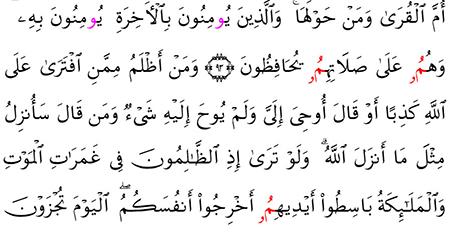 أُمَّ ٱلْقُرَىٰ وَمَنْ حَوْلَهَاۚ وَٱلَّذِينَ يُومِنُونَ بِٱلْأٓخِرَةِ يُومِنُونَ بِهِۦ
وَهُمُۥ عَلَىٰ صَلَاتِهِمُۥ يُحَافِظُونَ ۝٩٣ وَمَنْ أَظْلَمُ مِمَّنِ ٱفْتَرَىٰ عَلَى
ٱللَّهِ كَذِبًا أَوْ قَالَ أُوحِيَ إِلَيَّ وَلَمْ يُوحَ إِلَيْهِ شَيْءٌ وَمَن قَالَ سَأُنزِلُ
مِثْلَ مَا أَنزَلَ ٱللَّهُۗ وَلَوْ تَرَىٰ إِذِ ٱلظَّٰلِمُونَ فِي غَمَرَاتِ ٱلْمَوْتِ
وَٱلْمَلَٰٓئِكَةُ بَاسِطُواْ أَيْدِيهِمُۥ أَخْرِجُواْ أَنفُسَكُمُۖ ٱلْيَوْمَ تُجْزَوْنَ